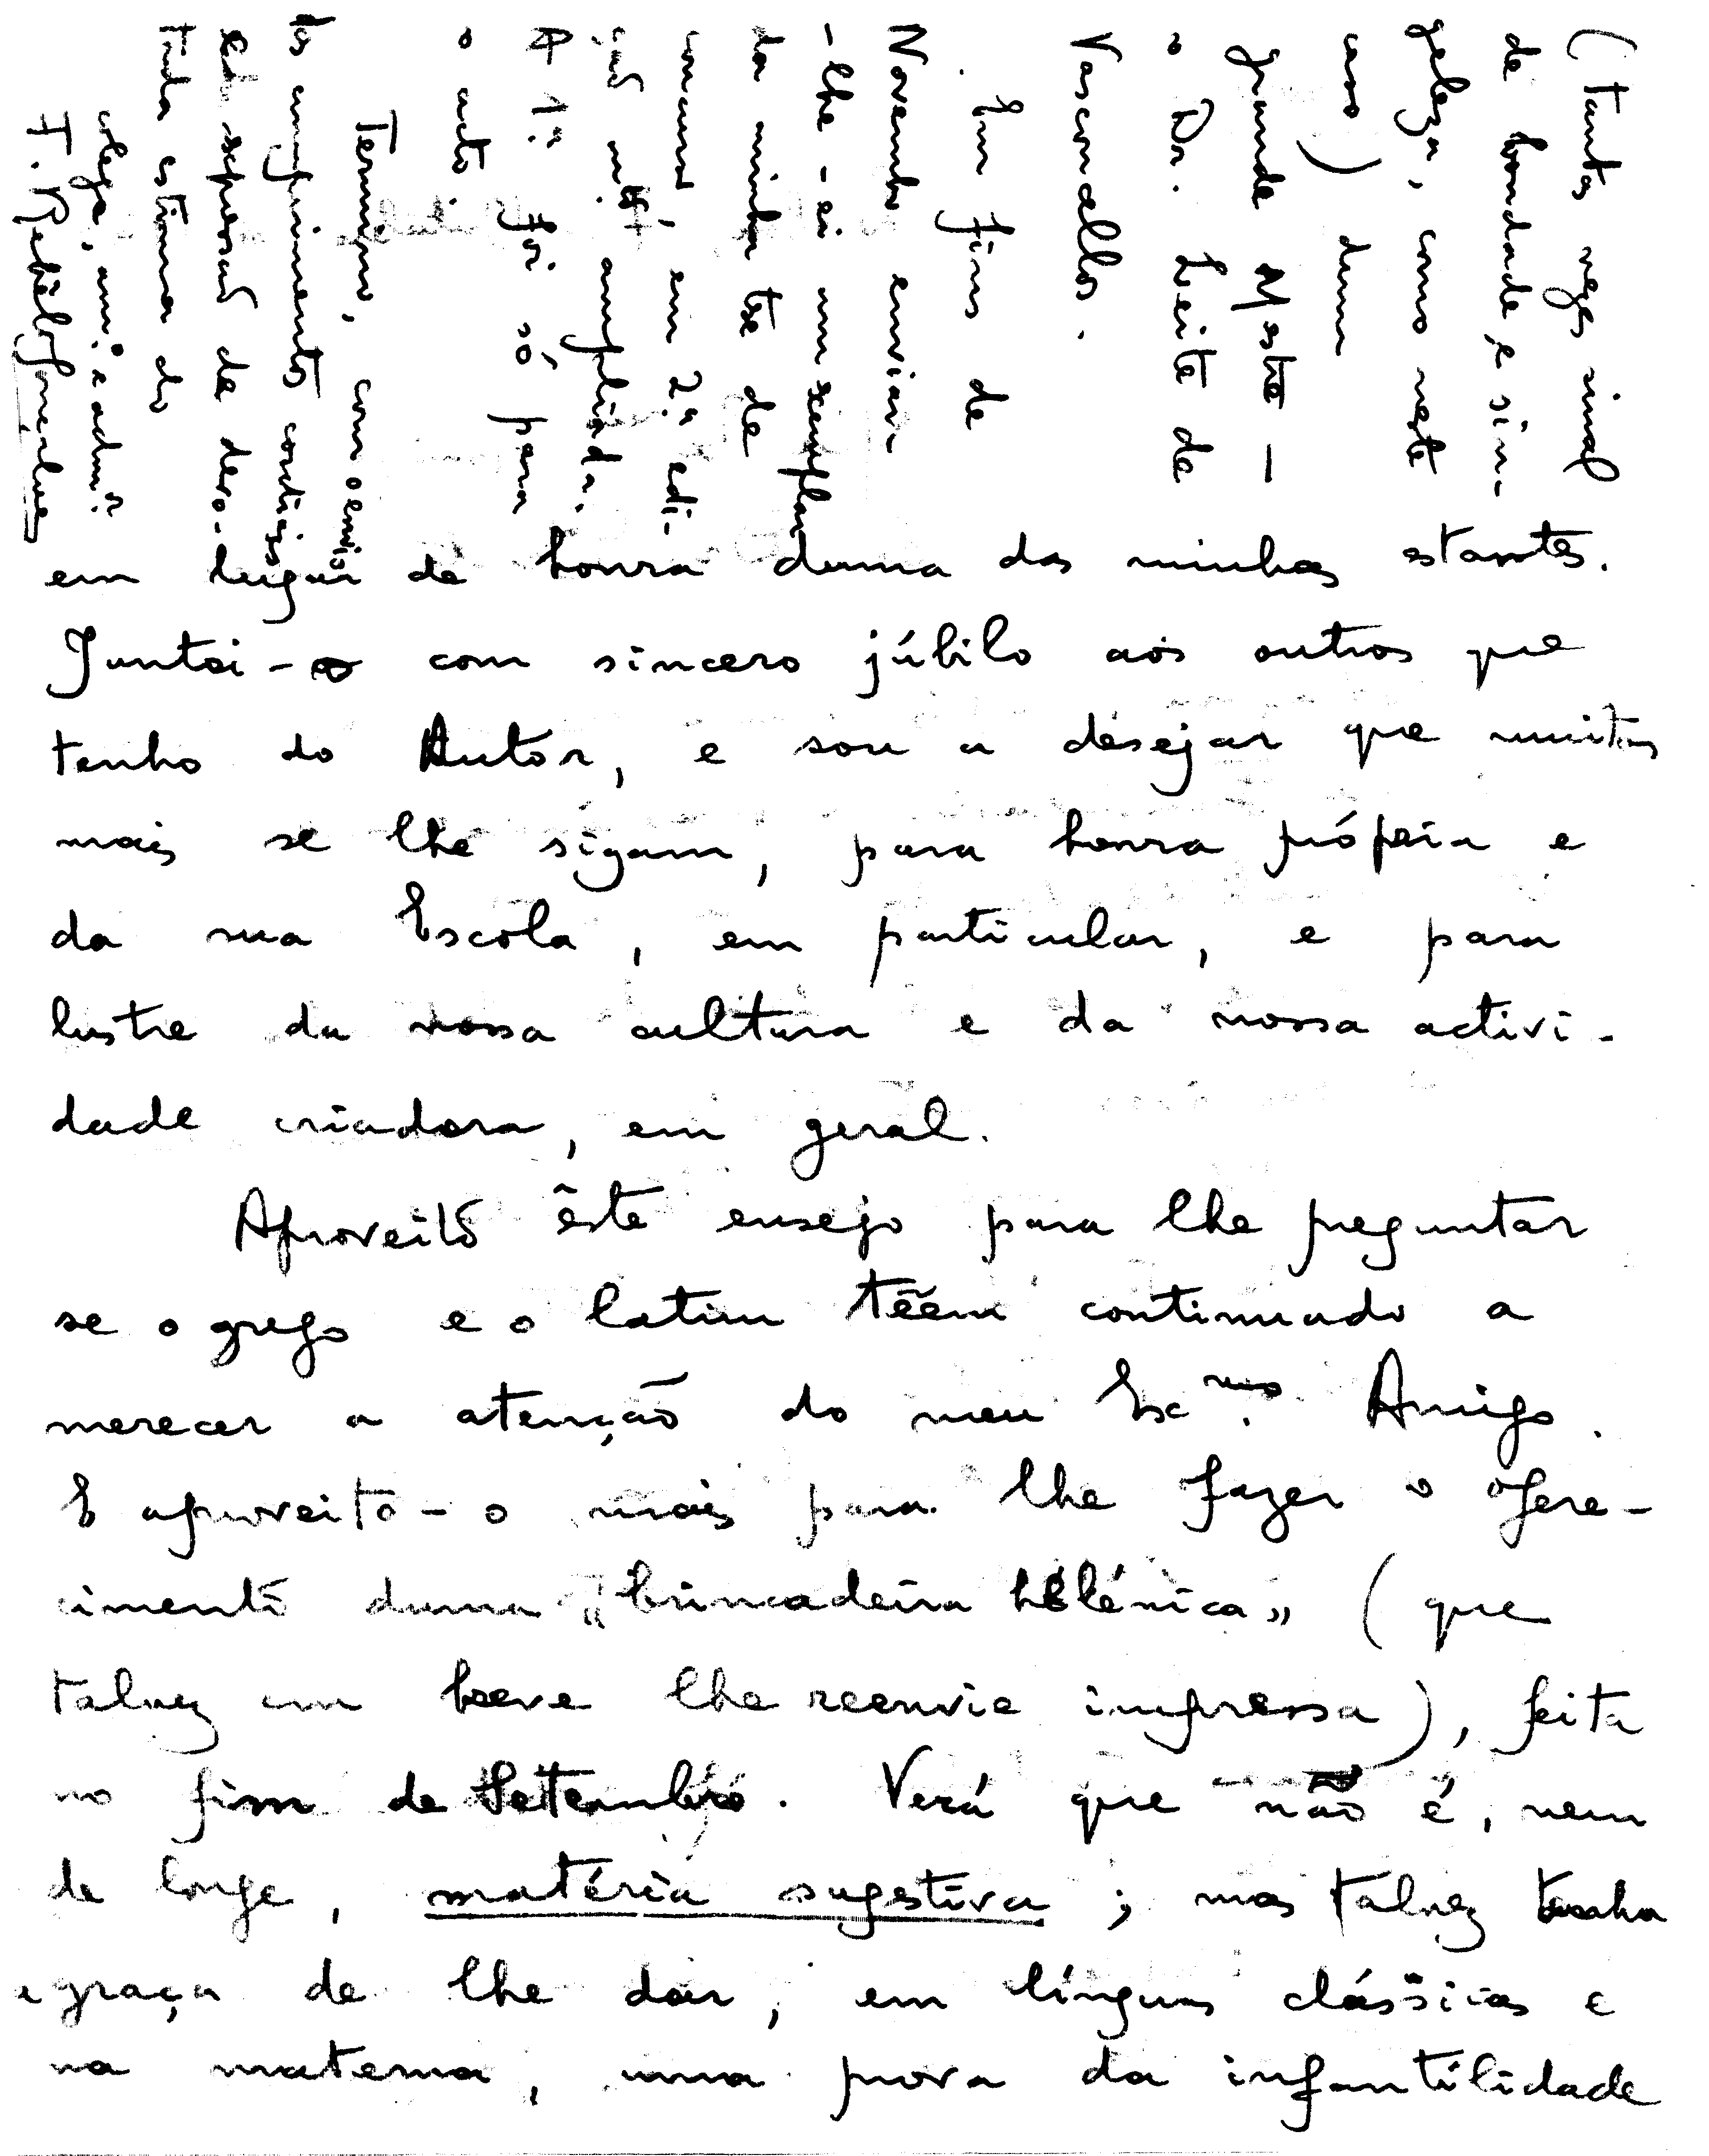 em lugar de honra duma das minhas estantes.
Juntei-o com sincero júbilo aos outros que
tenho do Autor, e sou a desejar que muitos
mais se lhe sigam, para honra própria e
da sua Escola, em particular, e para
lustre da nossa cultura e da nossa activi-
dade criadora, em geral.
Aproveito êste ensejo para lhe preguntar
se o grego e o latim têem continuado a
merecer a atenção do meu Exᵐᵒ. Amigo.
E aproveito-o mais para lhe fazer o ofere-
cimento duma «brincadeira helénica» (que
talvez em breve lhe reenvie impressa), feita
no fim de Setembro. Verá que não é, nem
de longe, matéria sugestiva; mas talvez tenha
a graça de lhe dar, em línguas clássicas e
na materna, uma prova da infantilidade
(tantas vezes sinal
de bondade e sin-
geleza, como neste
caso) dum
grande Mestre —
o Dr. Leite de
Vasconcellos.
Em fins de
Novembro enviar-
-lhe-ei um exemplar
da minha tese de
concurso, em 2ª edi-
ção mto. ampliada.
A 1ª foi só para
o acto.
Termino, com o envio
de cumprimentos cordiais
e a expressão de devo-
tada estima do
colega, am.º e admº.
F. Rebêlo Gonçalves